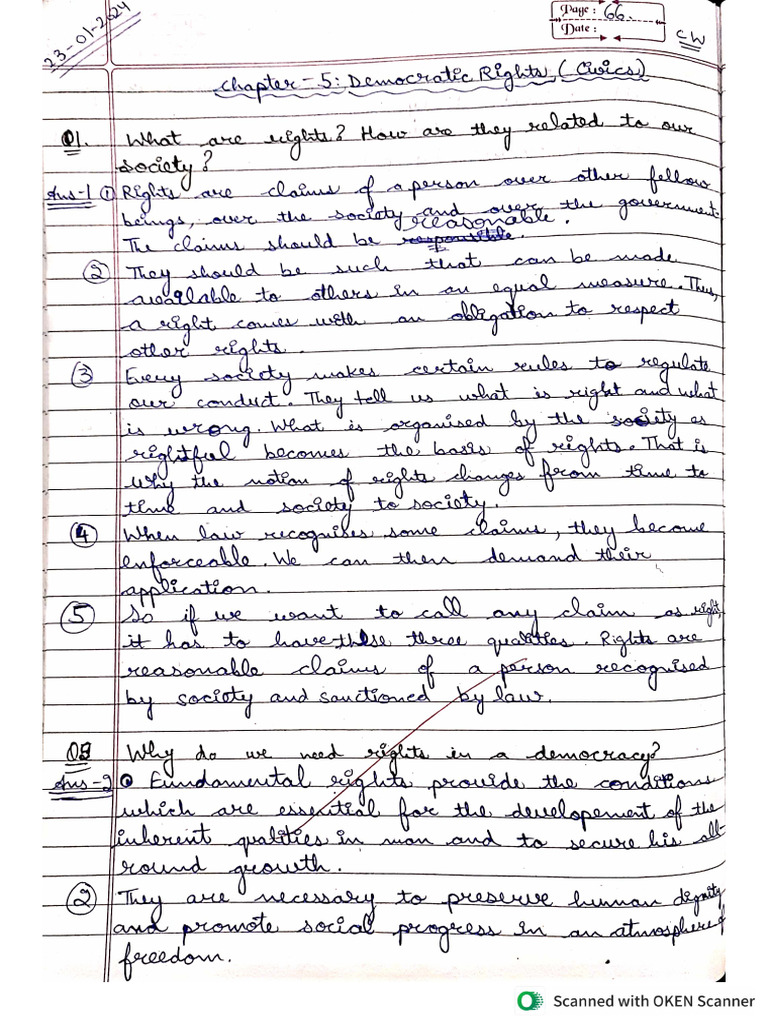 23-01-2024
Page: 66.
Date:
CW
Chapter-5: Democratic Rights (Civics)
Q1. What are rights? How are they related to our
society?
Ans-1 ① Rights are claims of a person over other fellow
beings, over the society and over the government.
reasonable.
The claims should be responsible.
② They should be such that can be made
available to others in an equal measure. Thus,
a right comes with an obligation to respect
other rights.
③ Every society makes certain rules to regulate
our conduct. They tell us what is right and what
is wrong. What is organised by the society as
rightful becomes the basis of rights. That is
why the notion of rights changes from time to
time and society to society.
④ When law recognises some claims, they become
enforceable. We can then demand their
application.
⑤ So if we want to call any claim as right,
it has to have these three qualities. Rights are
reasonable claims of a person recognised
by society and sanctioned by law.
Q2 Why do we need rights in a democracy?
Ans-2 ① Fundamental rights provide the conditions
which are essential for the developement of the
inherent qualities in man and to secure his all-
round growth.
② They are necessary to preserve human dignity
and promote social progress in an atmosphere of
freedom.
Scanned with OKEN Scanner